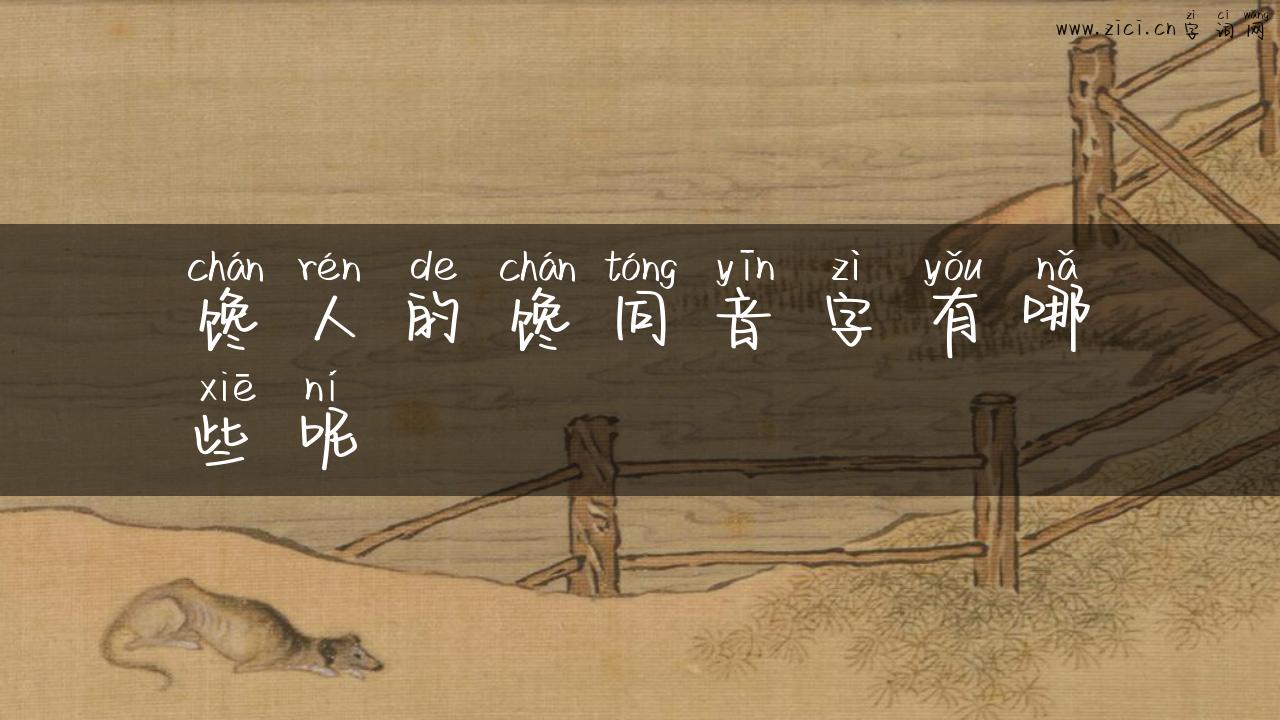 zì cí wang
www.zici.cn 字词网
chán rén de chán tóng yīn zì yǒu nǎ
馋人的馋同音字有哪
xiē ní
些呢